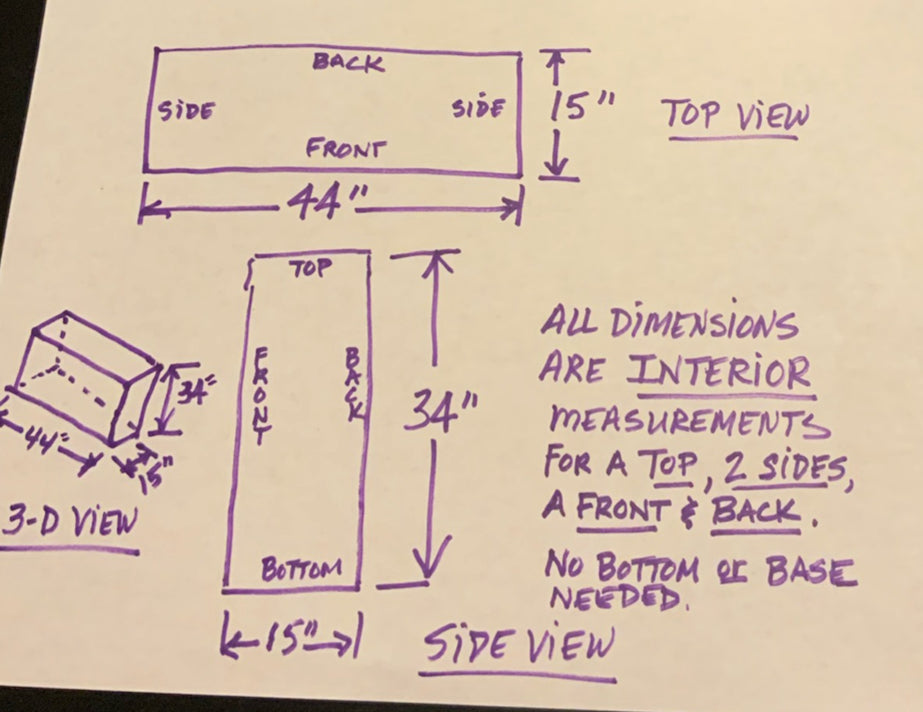 BACK
SIDE
SIDE
FRONT
15"
TOP VIEW
44"
TOP
FRONT
BACK
BOTTOM
34"
15"
SIDE VIEW
34"
44"
15"
3-D VIEW
ALL DIMENSIONS
ARE INTERIOR
MEASUREMENTS
FOR A TOP, 2 SIDES,
A FRONT & BACK.
NO BOTTOM or BASE
NEEDED.